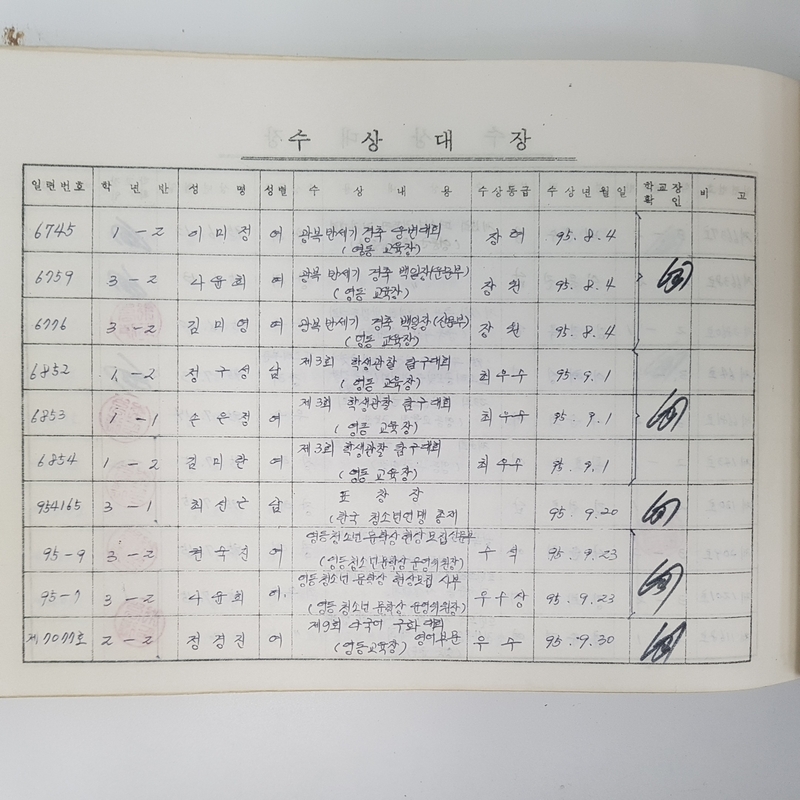 수 상 대 장
일련번호 학 년 반 성 명 성별 수 상 내 용 수상등급 수 상 년 월 일 학교장 확 인 비 고
6745 1-2 이미정 여 광복 반세기 경축 대회 95.8.4
(영동 교육장)
6759 3-2 나윤희 여 광복 반세기 경축 백일장(운문부) 장원 95.8.4
(영동 교육장)
6776 3-2 김미영 여 광복 반세기 경축 백일장(산문부) 장원 95.8.4
(영동 교육장)
6852 1-2 정구성 남 제3회 학생관찰 탐구대회 최우수 95.9.1
(영동 교육장)
6853 1-1 손은정 여 제3회 학생관찰 탐구대회 최우수 95.9.1
(영동 교육장)
6854 1-2 김미란 여 제3회 학생관찰 탐구대회 최우수 95.9.1
(영동 교육장)
954165 3-1 최신근 남 표 창 장 95.9.20
(한국 청소년연맹 총재
95-9 3-2 여 영동청소년문학상 현상모집 산문부 우석 95.9.23
(영동청소년문학상 운영위원장)
95-7 3-2 나윤희 여 영동청소년 문학상 현상모집 시부 우수상 95.9.23
(영동청소년 문학상 운영위원장)
제7077호 2-2 정경진 여 제9회 외국어 구화 대회 우수 95.9.30
(영동교육장) 영어부문